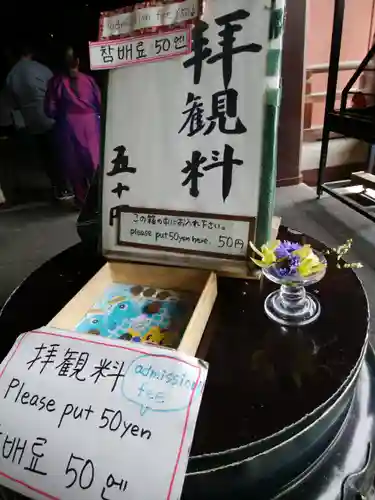 Admission fee
참배료 50엔
拝観料
五十円
この箱の中にお入れ下さい。
please put 50yen here.
50円
拝観料
admission fee
Please put 50yen
참배료 50엔